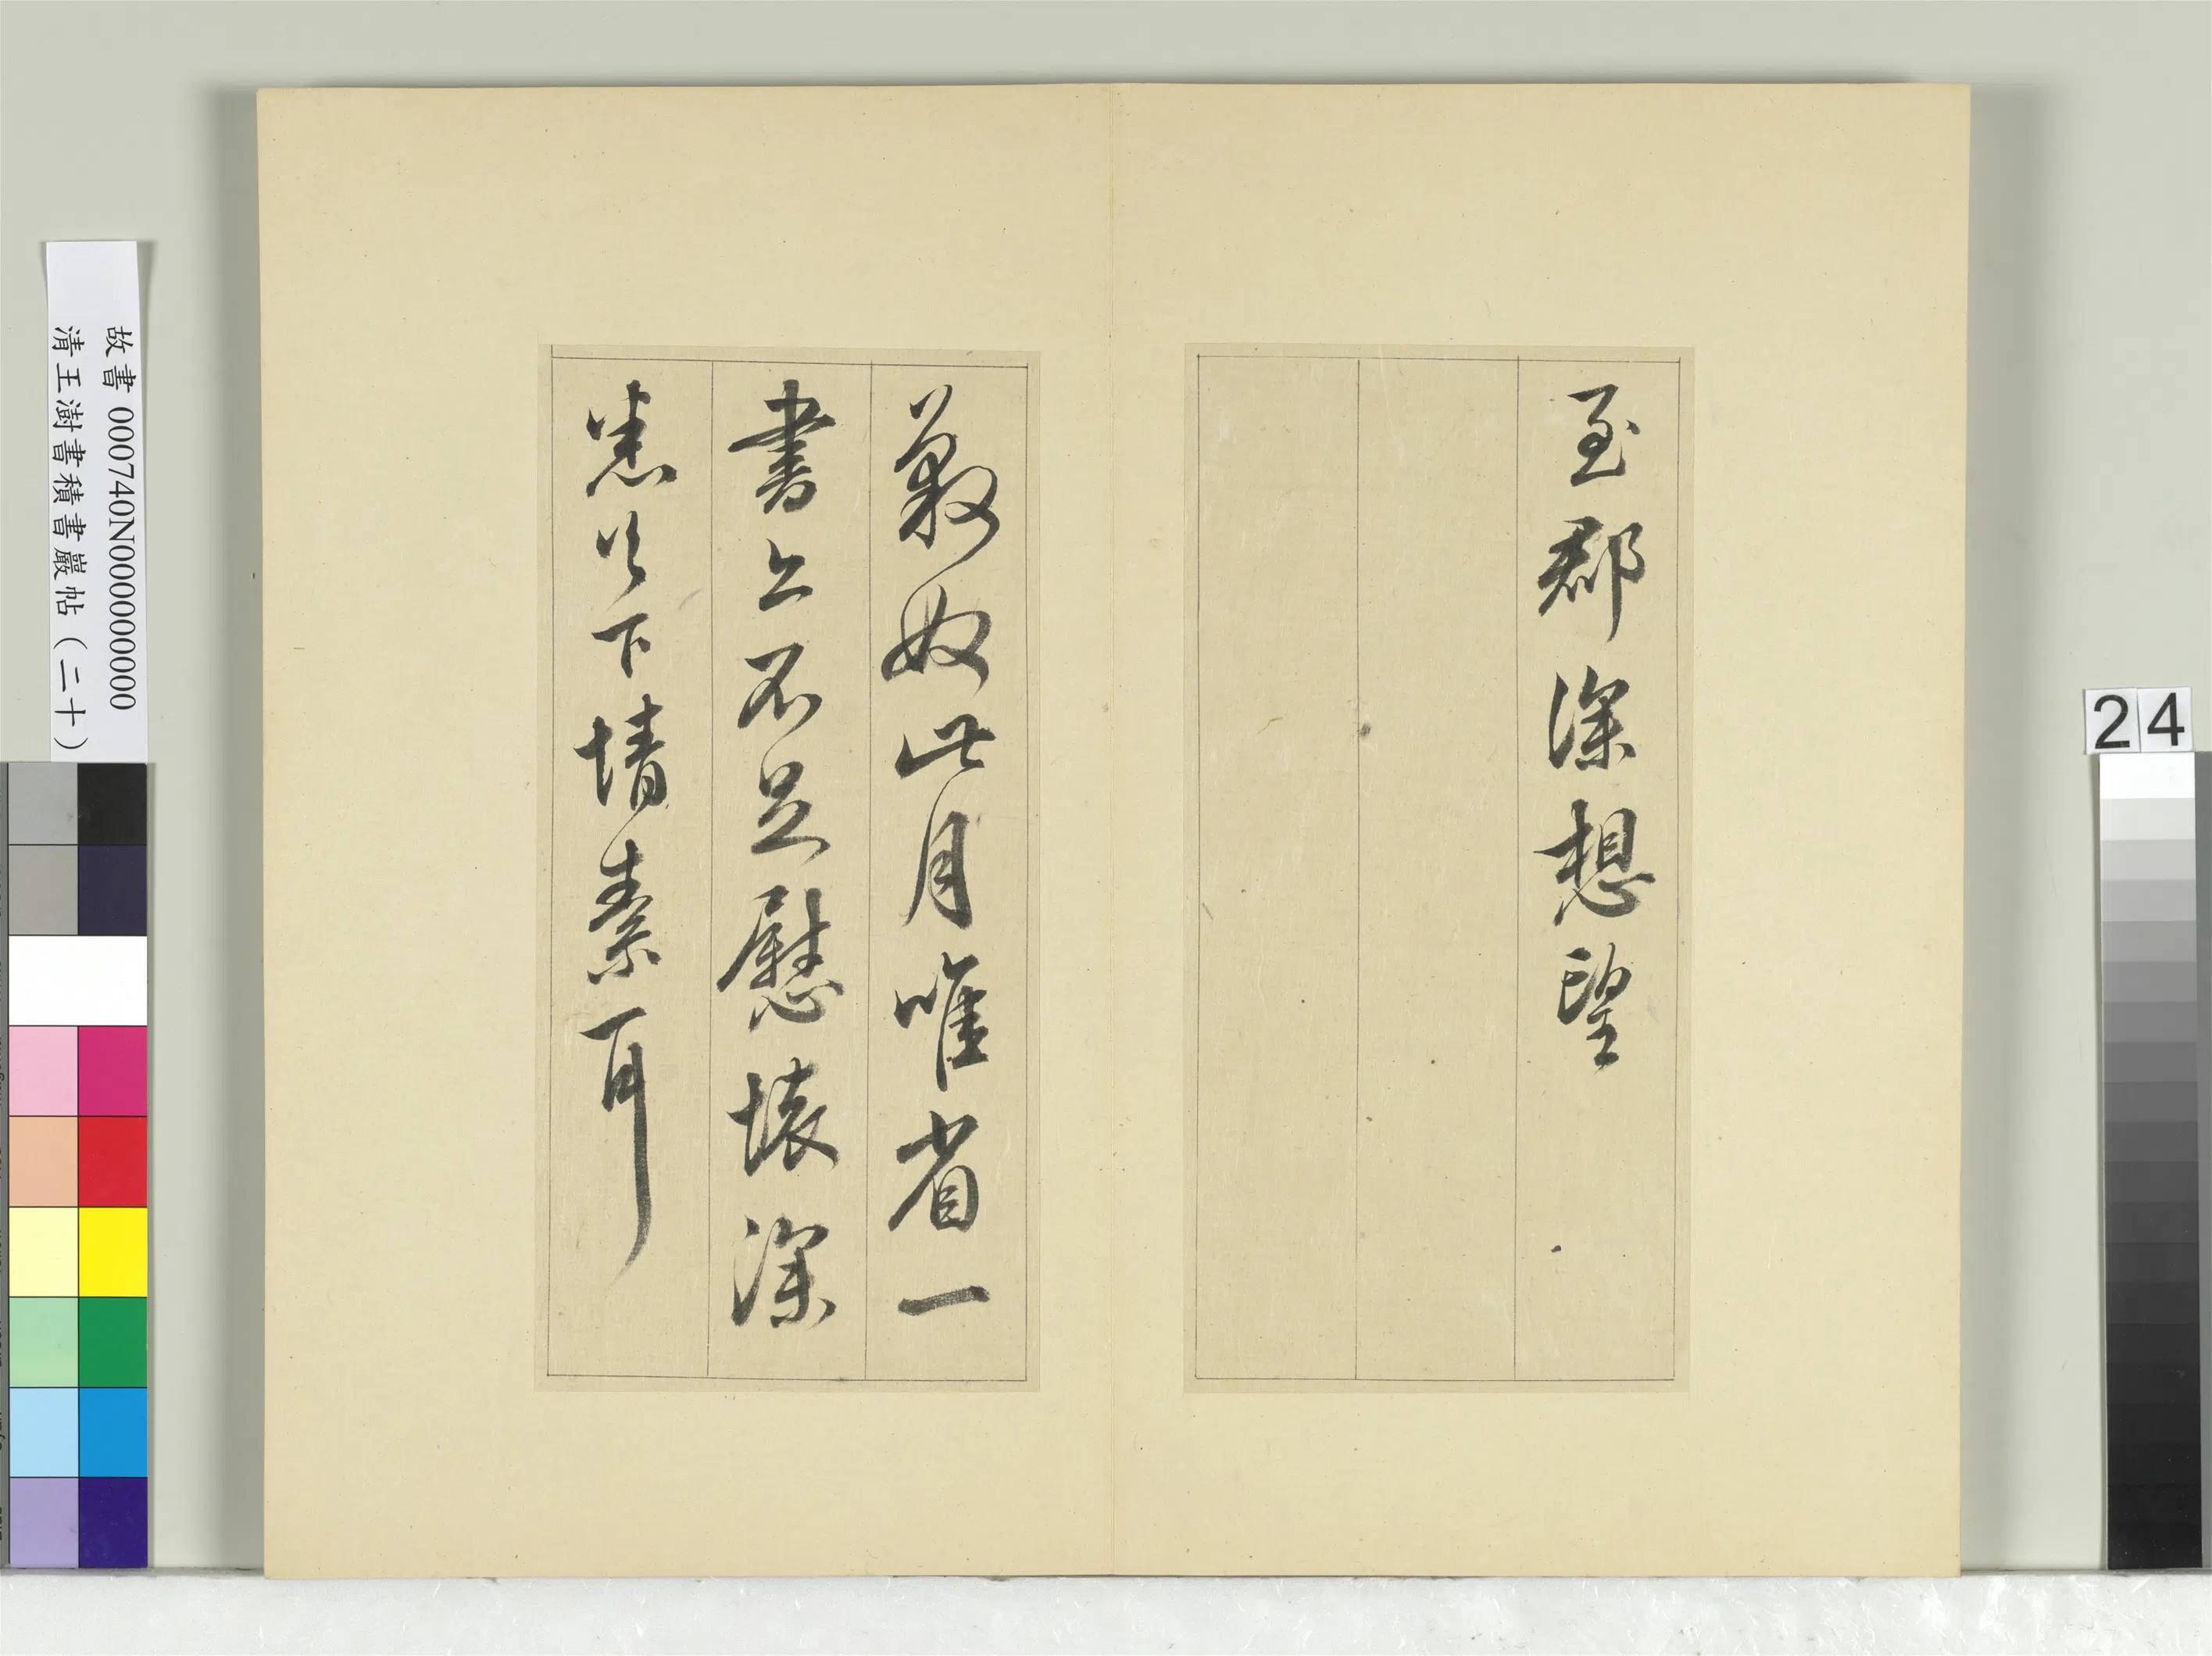 至郡深想望
奴此月唯省一
書亦不足慰懷深
悉足下情素耳
故書 000740N000000000
清王澍書積書巖帖（二十）
24